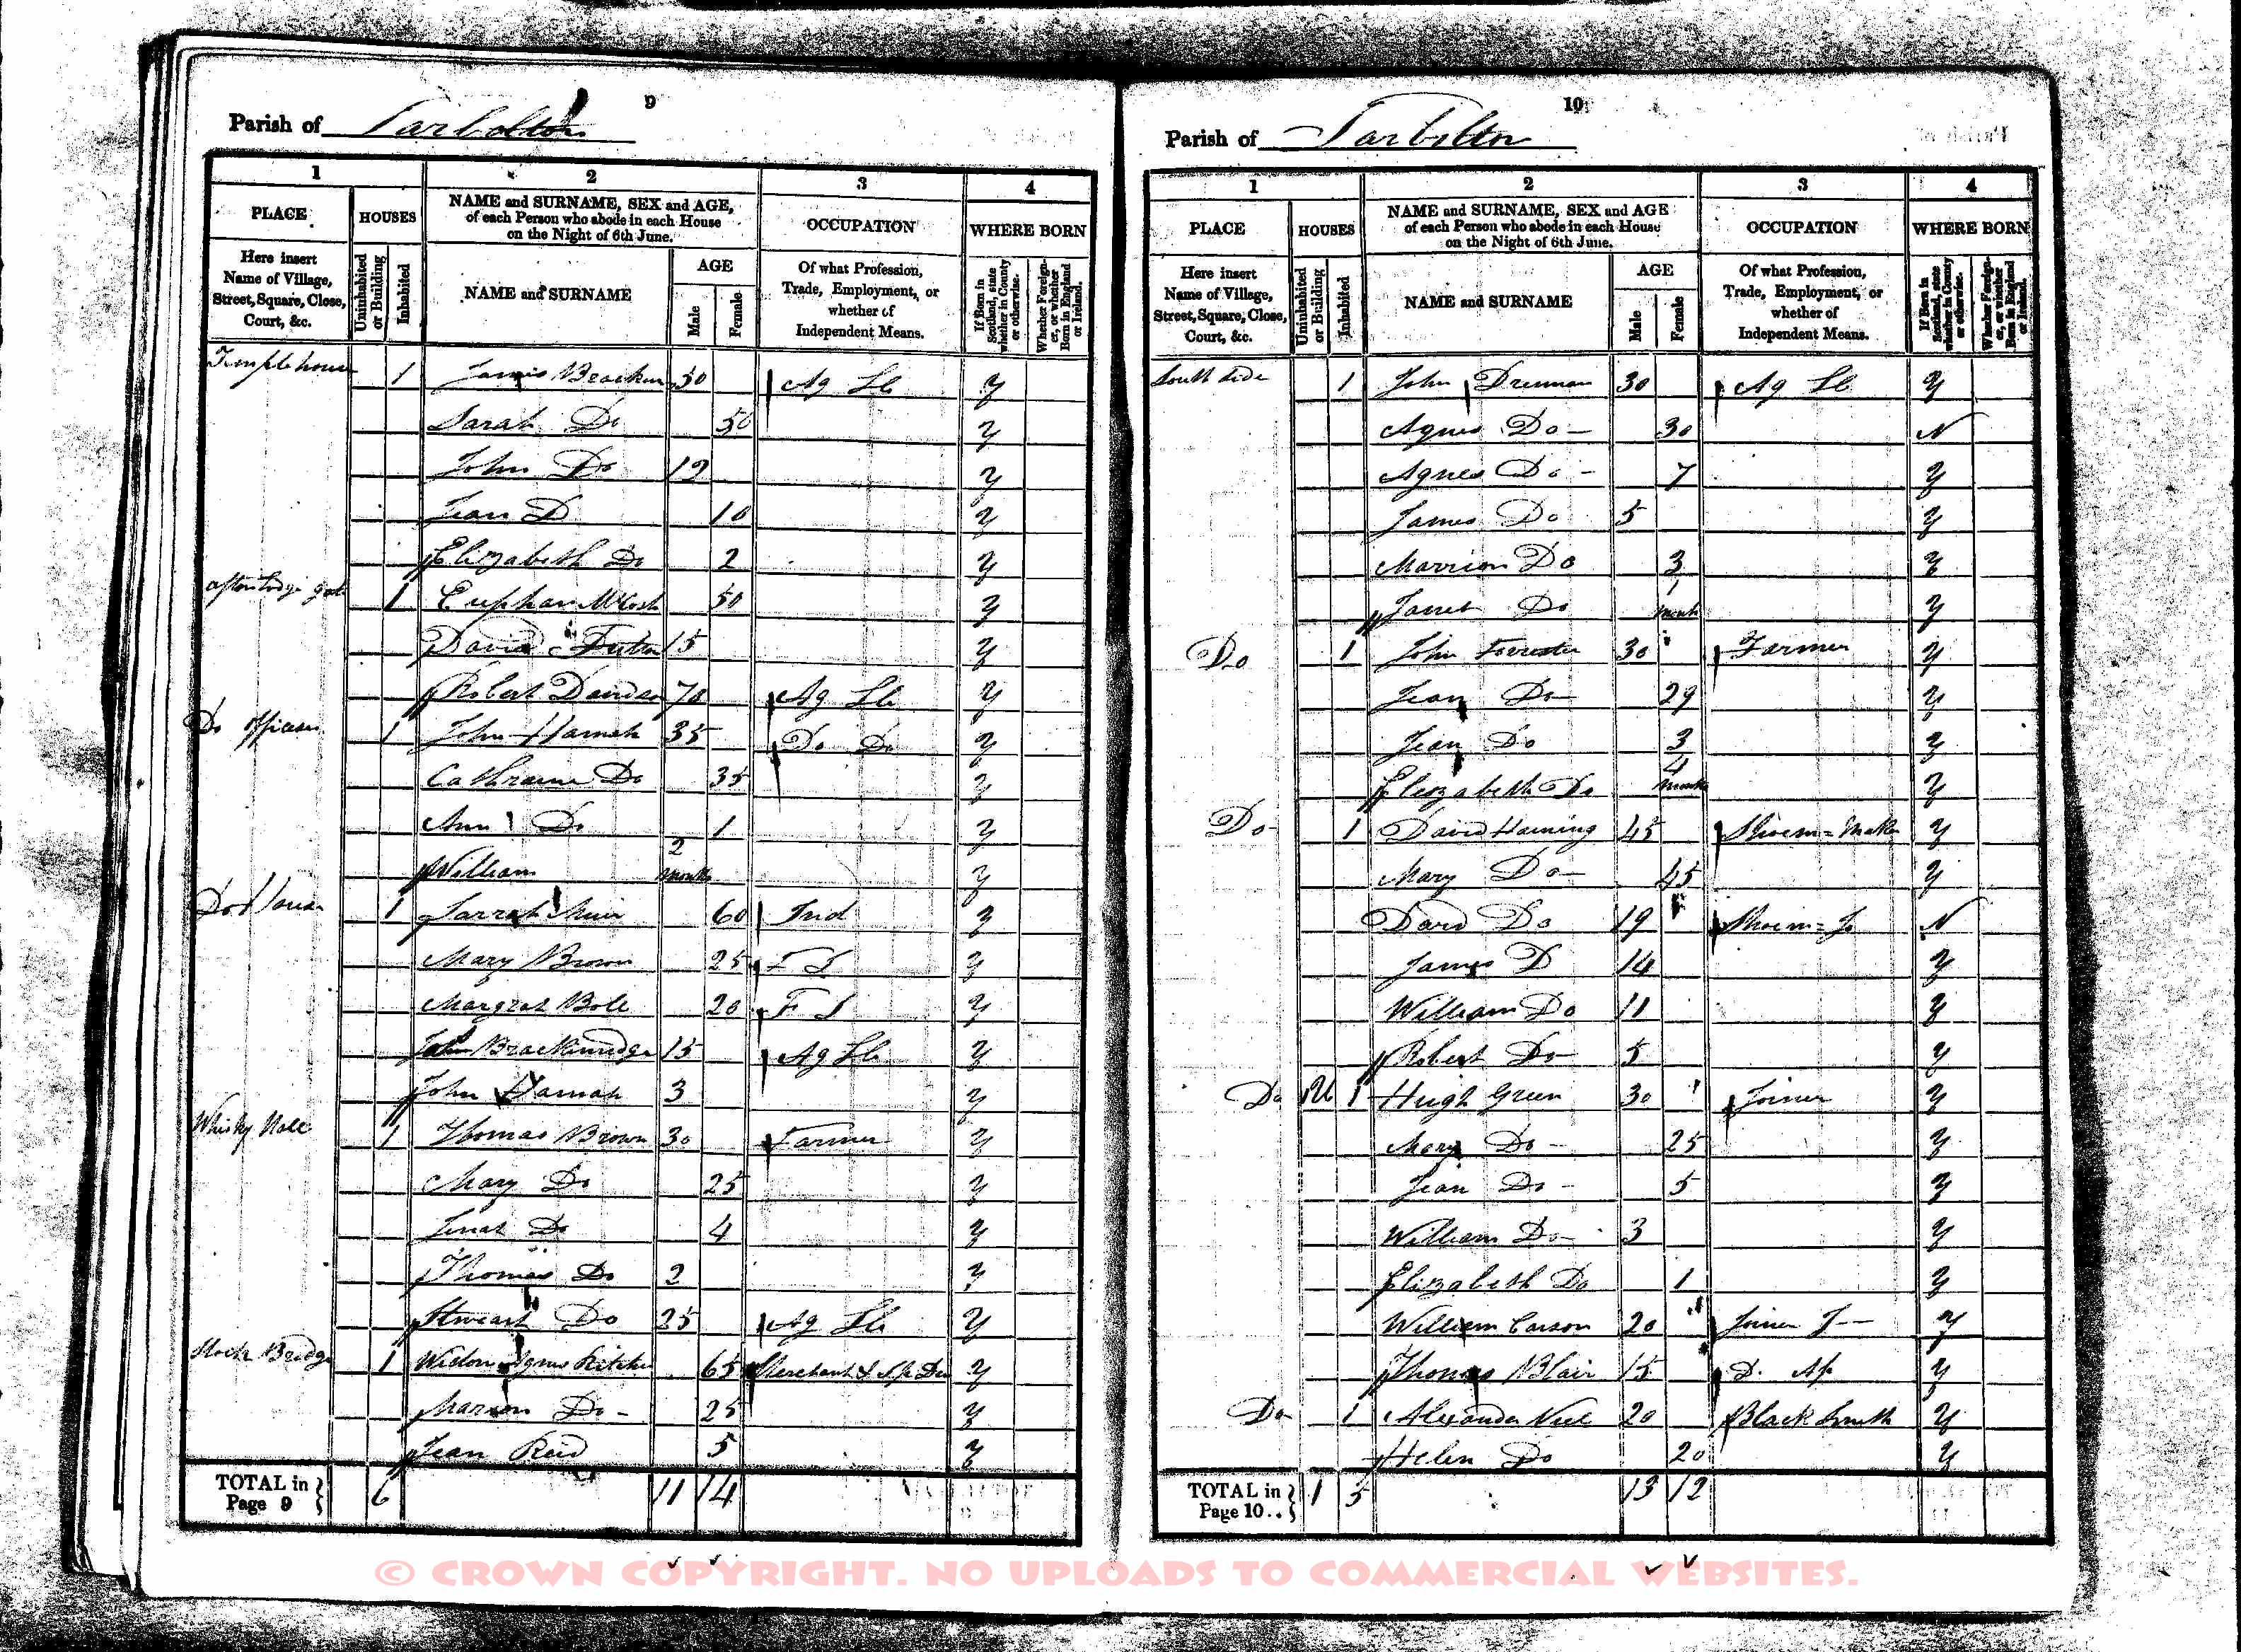 9
Parish of Tarbolton
1 2 3 4
PLACE HOUSES NAME and SURNAME, SEX and AGE, of each Person who abode in each House on the Night of 6th June. OCCUPATION WHERE BORN
Here insert Name of Village, Street, Square, Close, Court, &c. Uninhabited or Building Inhabited NAME and SURNAME AGE Male Female Of what Profession, Trade, Employment, or whether of Independent Means. If Born in Scotland, state whether in County or otherwise. Whether Foreigner, or whether Born in England or Ireland.
1 50 Ag Lb Y
Sarah Do 50 Y
John Do 12 Y
Jean D 10 Y
Elizabeth Do 2 Y
1 Euphan McCosh 50 Y
David 15 Y
Robert Davidson 70 Ag Lb Y
Do offices 1 John Hannah 35 Do Do Y
Do 35 Y
Ann Do 1 Y
William 2 months Y
Do House 1 Sarrah Muir 60 Ind Y
Mary Brown 25 F S Y
Margrat Bole 20 F S Y
John Brackenridge 15 Ag Lb Y
John Hannah 3 Y
Whisky Hall 1 Thomas Brown 30 Farmer Y
Mary Do 25 Y
Do 4 Y
Thomas Do 2 Y
Stweart Do 25 Ag Lb Y
Stock Bridge 1 Widow Agnes Ritchie 65 Merchant & Sp De Y
Marion Do - 25 Y
Jean Reid 5 Y
TOTAL in Page 9 6 11 14
10
Parish of Tarbolton
1 2 3 4
PLACE HOUSES NAME and SURNAME, SEX and AGE of each Person who abode in each House on the Night of 6th June. OCCUPATION WHERE BORN
Here insert Name of Village, Street, Square, Close, Court, &c. Uninhabited or Building Inhabited NAME and SURNAME AGE Male Female Of what Profession, Trade, Employment, or whether of Independent Means. If Born in Scotland, state whether in County or otherwise. Whether Foreigner, or whether Born in England or Ireland.
South Side 1 John Drennan 30 Ag Lb Y
Agnes Do - 30 N
Agnes Do - 7 Y
James Do 5 Y
Marrion Do 3 Y
Janet Do 1 month Y
Do 1 John Forrester 30 Farmer Y
Jean Do - 29 Y
Jean Do 3 Y
Elizabeth Do 4 months Y
Do - 1 David Haining 45 Shoem = Maker Y
Mary Do - 45 Y
David Do 19 Shoem = Jo N
James D 14 Y
William Do 11 Y
Robert Do - 5 Y
Do 1U 1 Hugh Green 30 Joiner Y
Mary Do - 25 Y
Jean Do - 5 Y
William Do - 3 Y
Elizabeth Do 1 Y
William Carson 20 Joiner J - Y
Thomas Blair 15 D. Ap Y
Do - 1 Alexander Neil 20 Black Smith Y
Helen Do 20 Y
TOTAL in Page 10 .. 1 5 13 12
© CROWN COPYRIGHT. NO UPLOADS TO COMMERCIAL WEBSITES.